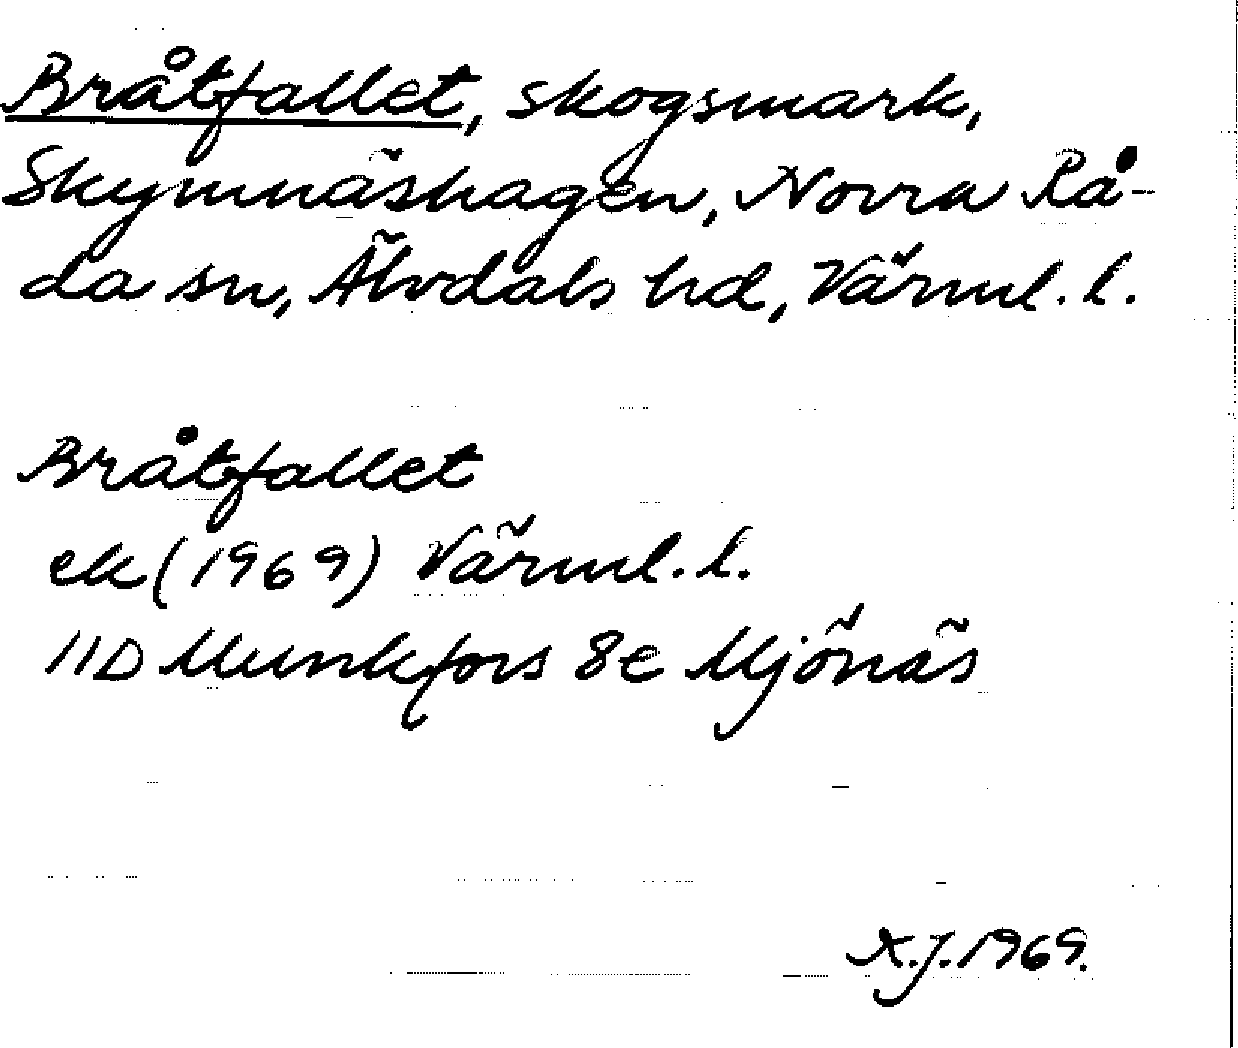 Bråtfallet, skogsmark,
Skymnäshagen, Norra Rå-
da sn, Älvdals hd, Värml. l.
Bråtfallet
ek (1969) Värml. l.
11D Munkfors 8e Mjönäs
K.J. 1969.